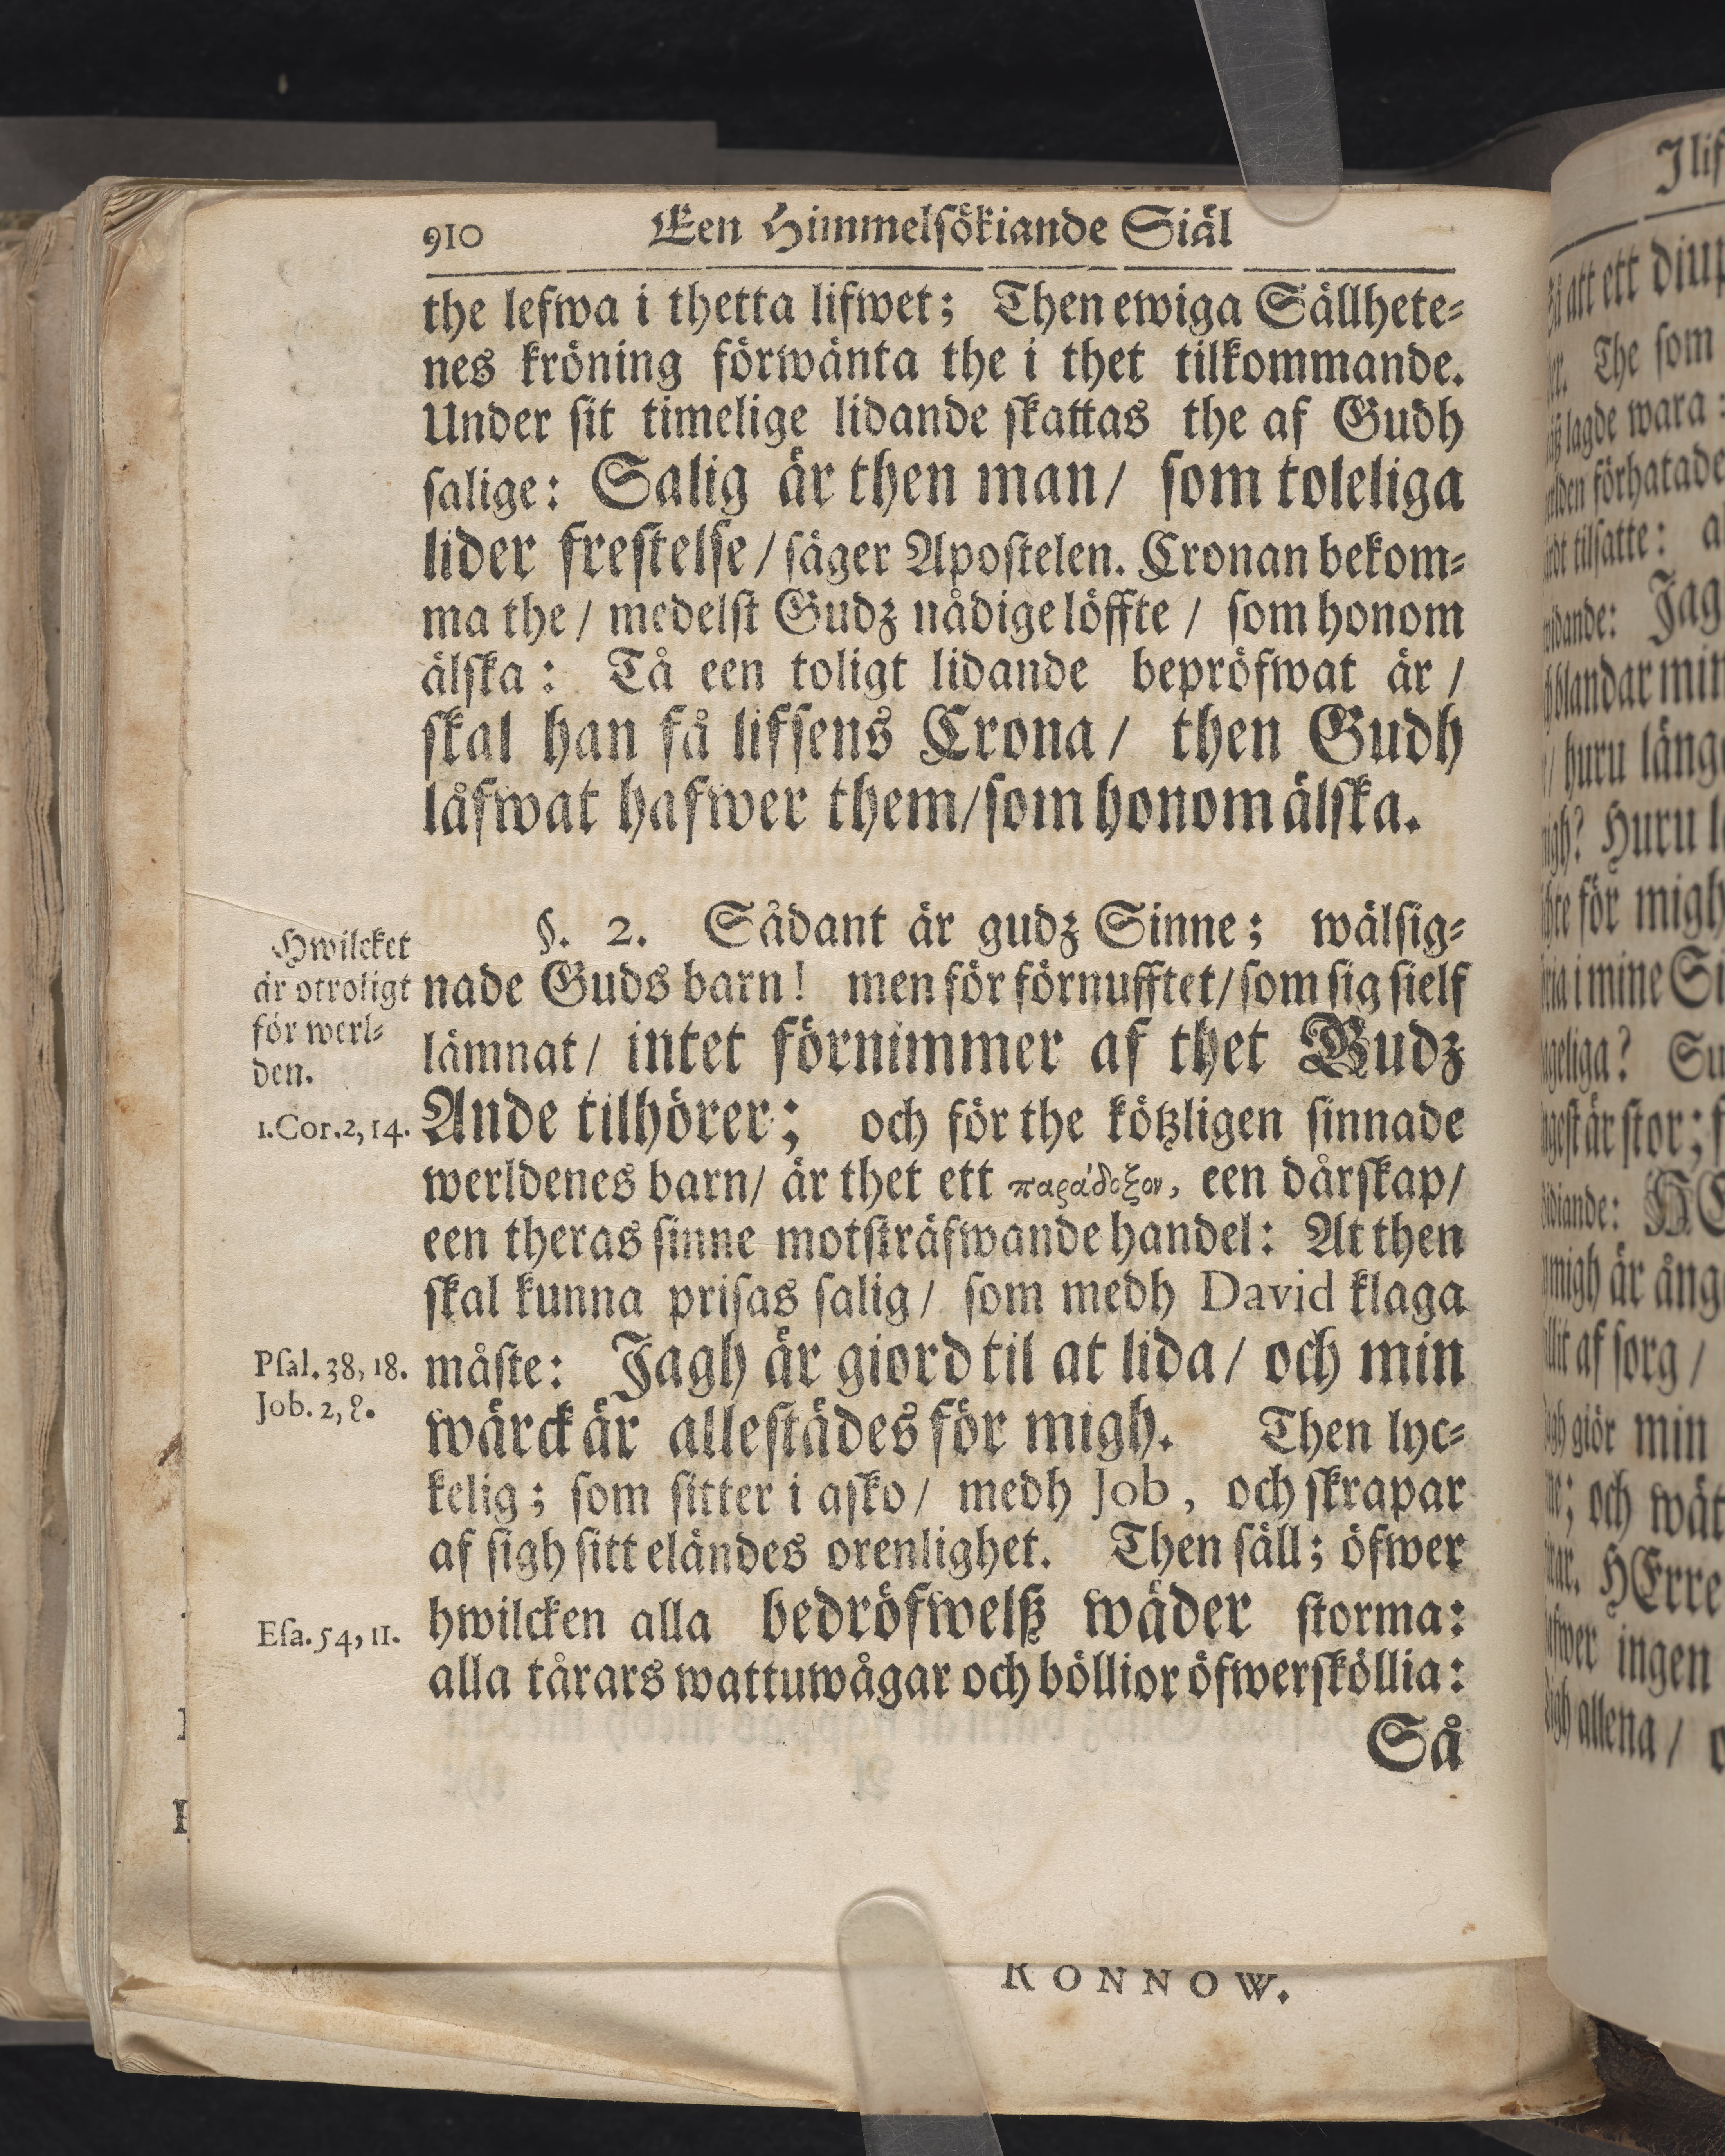 910 Een Himmelsökiande Siäl
the lefwa i thetta lifwet; Then ewiga Sällhete-
nes kröning förwänta the i thet tilkommande.
Under sit timelige lidande skattas the af Gudh
salige: Salig är then man/ som toleliga
lider frestelse/ säger Apostelen. Cronan bekom-
ma the/ medelst Gudz nådige löffte/ som honom
älska: Tå een toligt lidande bepröfwat är/
skal han få lifsens Crona/ then Gudh
låfwat hafwer them/ som honom älska.
§. 2. Sådant är gudz Sinne; wälsig-
nade Guds barn! men för förnufftet/ som sig sielf
lämnat/ intet förnimmer af thet Gudz
Ande tilhörer; och för the kötzligen sinnade
werldenes barn/ är thet ett παράδοξον, een dårskap/
een theras sinne motsträfwande handel: At then
skal kunna prisas salig/ som medh David klaga
måste: Jagh är giord til at lida/ och min
wärck är allestädes för migh. Then lyc-
kelig; som sitter i asko/ medh Job, och skrapar
af sigh sitt eländes orenlighet. Then säll; öfwer
hwilcken alla bedröfwelß wäder storma:
alla tårars wattuwågar och böllior öfwersköllia:
Så
Hwilcket
är otroligt
för werl-
den.
1.Cor.2,14.
Psal.38,18.
Job.2,8.
Esa.54,11.
RONNOW.
Jlif
att ett diup
The som
lagde wara:
förhatade
tilsatte: a
Jag
blandar min
huru länge
Huru l
för migh
i mine Si
Su
är stor; f
migh är ång
af sorg/
giör min
och wät
HErre
ingen
allena/